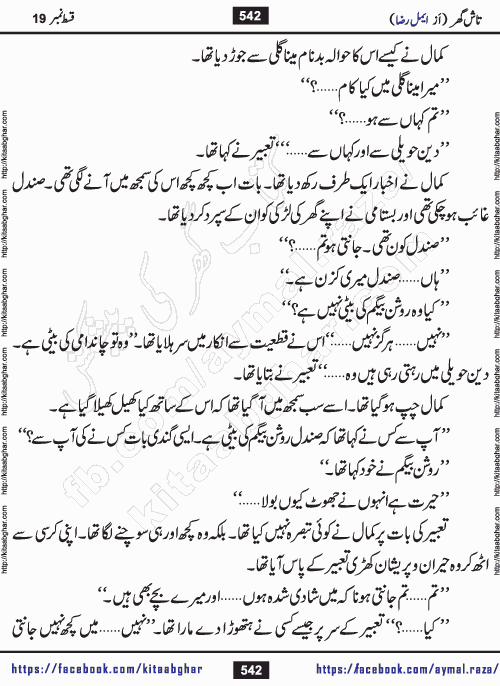 تاش گھر (از ایمل رضا) 542 قسط نمبر 19
کمال نے کیسے اس کا حوالہ بدنام مینا گلی سے جوڑ دیا تھا۔
’’میرا مینا گلی میں کیا کام......؟‘‘
’’تم کہاں سے ہو......؟‘‘
’’دین حویلی سے اور کہاں سے......‘‘‘ تعبیر نے کہا تھا۔
کمال نے اخبار ایک طرف رکھ دیا تھا۔ بات اب کچھ کچھ اس کی سمجھ میں آنے لگی تھی۔ صندل
غائب ہو چکی تھی اور بستامی نے اپنے گھر کی لڑکی کو ان کے سپرد کر دیا تھا۔
’’صندل کون تھی۔ جانتی ہو تم......؟‘‘
’’ہاں......صندل میری کزن ہے۔‘‘
’’کیا وہ روشن بیگم کی بیٹی نہیں ہے؟‘‘
’’نہیں......ہرگز نہیں......‘‘ اس نے قطعیت سے انکار میں سر ہلایا تھا۔ ’’وہ تو چاندا می کی بیٹی ہے۔
دین حویلی میں رہتی رہی ہیں وہ......‘‘ تعبیر نے بتایا تھا۔
کمال چپ ہو گیا تھا۔ اسے سب سمجھ میں آ گیا تھا کہ اس کے ساتھ کیا کھیل کھیلا گیا ہے۔
’’آپ سے کس نے کہا تھا کہ صندل روشن بیگم کی بیٹی ہے۔ ایسی گندی بات کس نے کی آپ سے؟‘‘
’’روشن بیگم نے خود کہا تھا۔‘‘
’’حیرت ہے انہوں نے جھوٹ کیوں بولا......‘‘
تعبیر کی بات پر کمال نے کوئی تبصرہ نہیں کیا تھا۔ بلکہ وہ کچھ اور ہی سوچنے لگا تھا۔ اپنی کرسی سے
اٹھ کر وہ حیران و پریشان کھڑی تعبیر کے پاس آیا تھا۔
’’تم......تم جانتی ہو نا کہ میں شادی شدہ ہوں......اور میرے بچے بھی ہیں۔‘‘
’’کیا......؟‘‘ تعبیر کے سر پر جیسے کسی نے ہتھوڑا دے مارا تھا۔ ’’نہیں......میں کچھ نہیں جانتی
https://facebook.com/kitaabghar 542 https://facebook.com/aymal.raza/
http://kitaabghar.com http://kitaabghar.com http://kitaabghar.com http://kitaabghar.com http://kitaabghar.com http://kitaabghar.com
http://kitaabghar.com http://kitaabghar.com http://kitaabghar.com http://kitaabghar.com http://kitaabghar.com http://kitaabghar.com
fb.com/aymalraza
kitaabghar.com